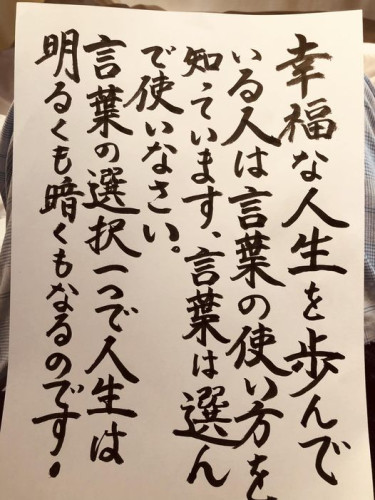 幸福な人生を歩んで
いる人は言葉の使い方を
知っています、言葉は選ん
で使いなさい。
言葉の選択一つで人生は
明るくも暗くもなるのです!